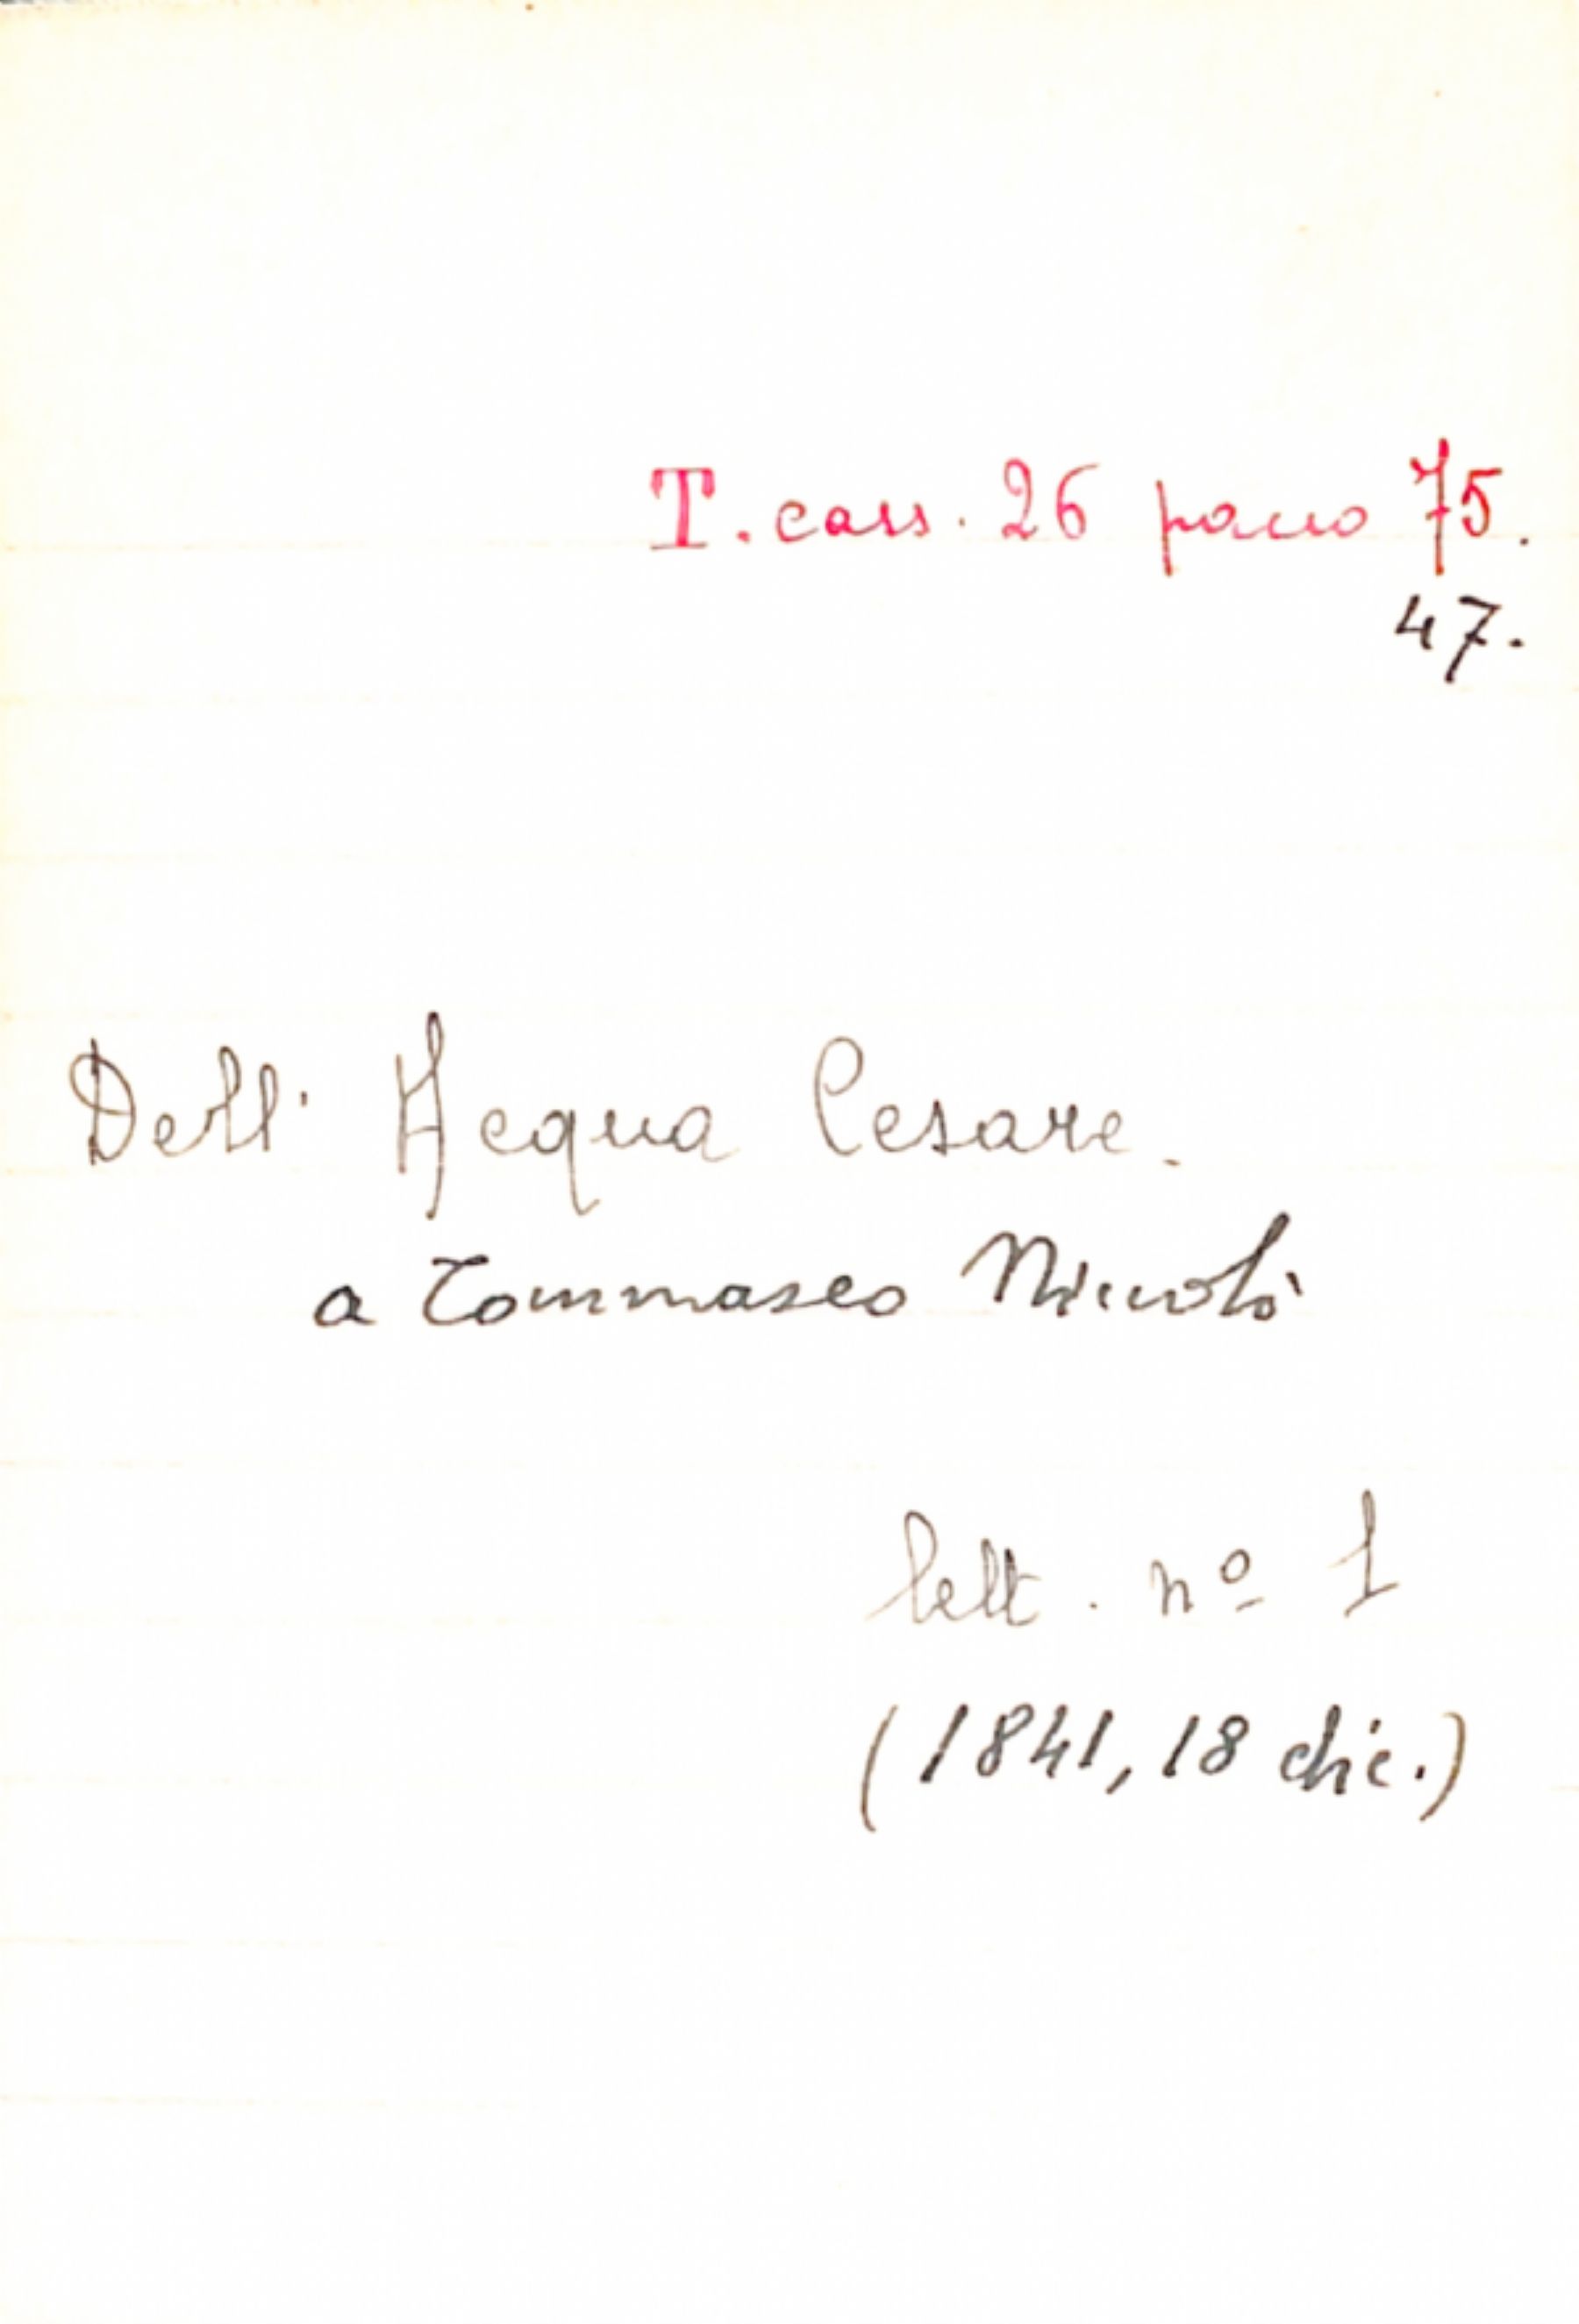 T. cass. 26 pacco 75.
47.
Dell' Acqua Cesare.
a Tommaseo Niccolò
lett. nº 1
(1841, 18 dic.)